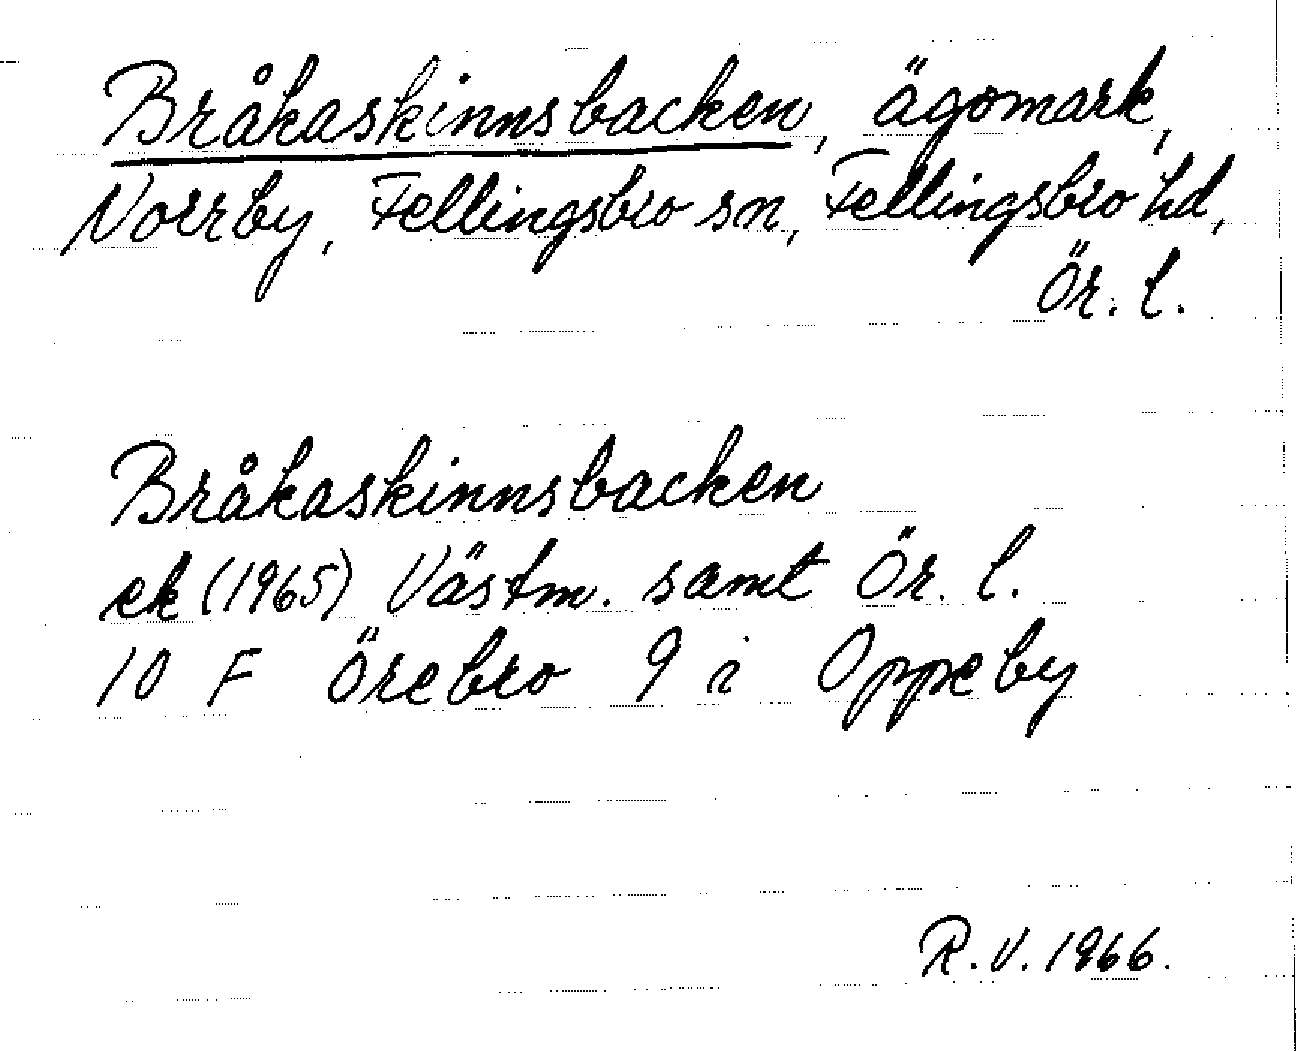 Bråkaskinnsbacken, ägomark,
Norrby, Fellingsbro sn, Fellingsbro hd,
Ör. l.
Bråkaskinnsbacken
ek (1965) Västm. samt Ör. l.
10 F Örebro 9 i Oppeby
R.V. 1966.